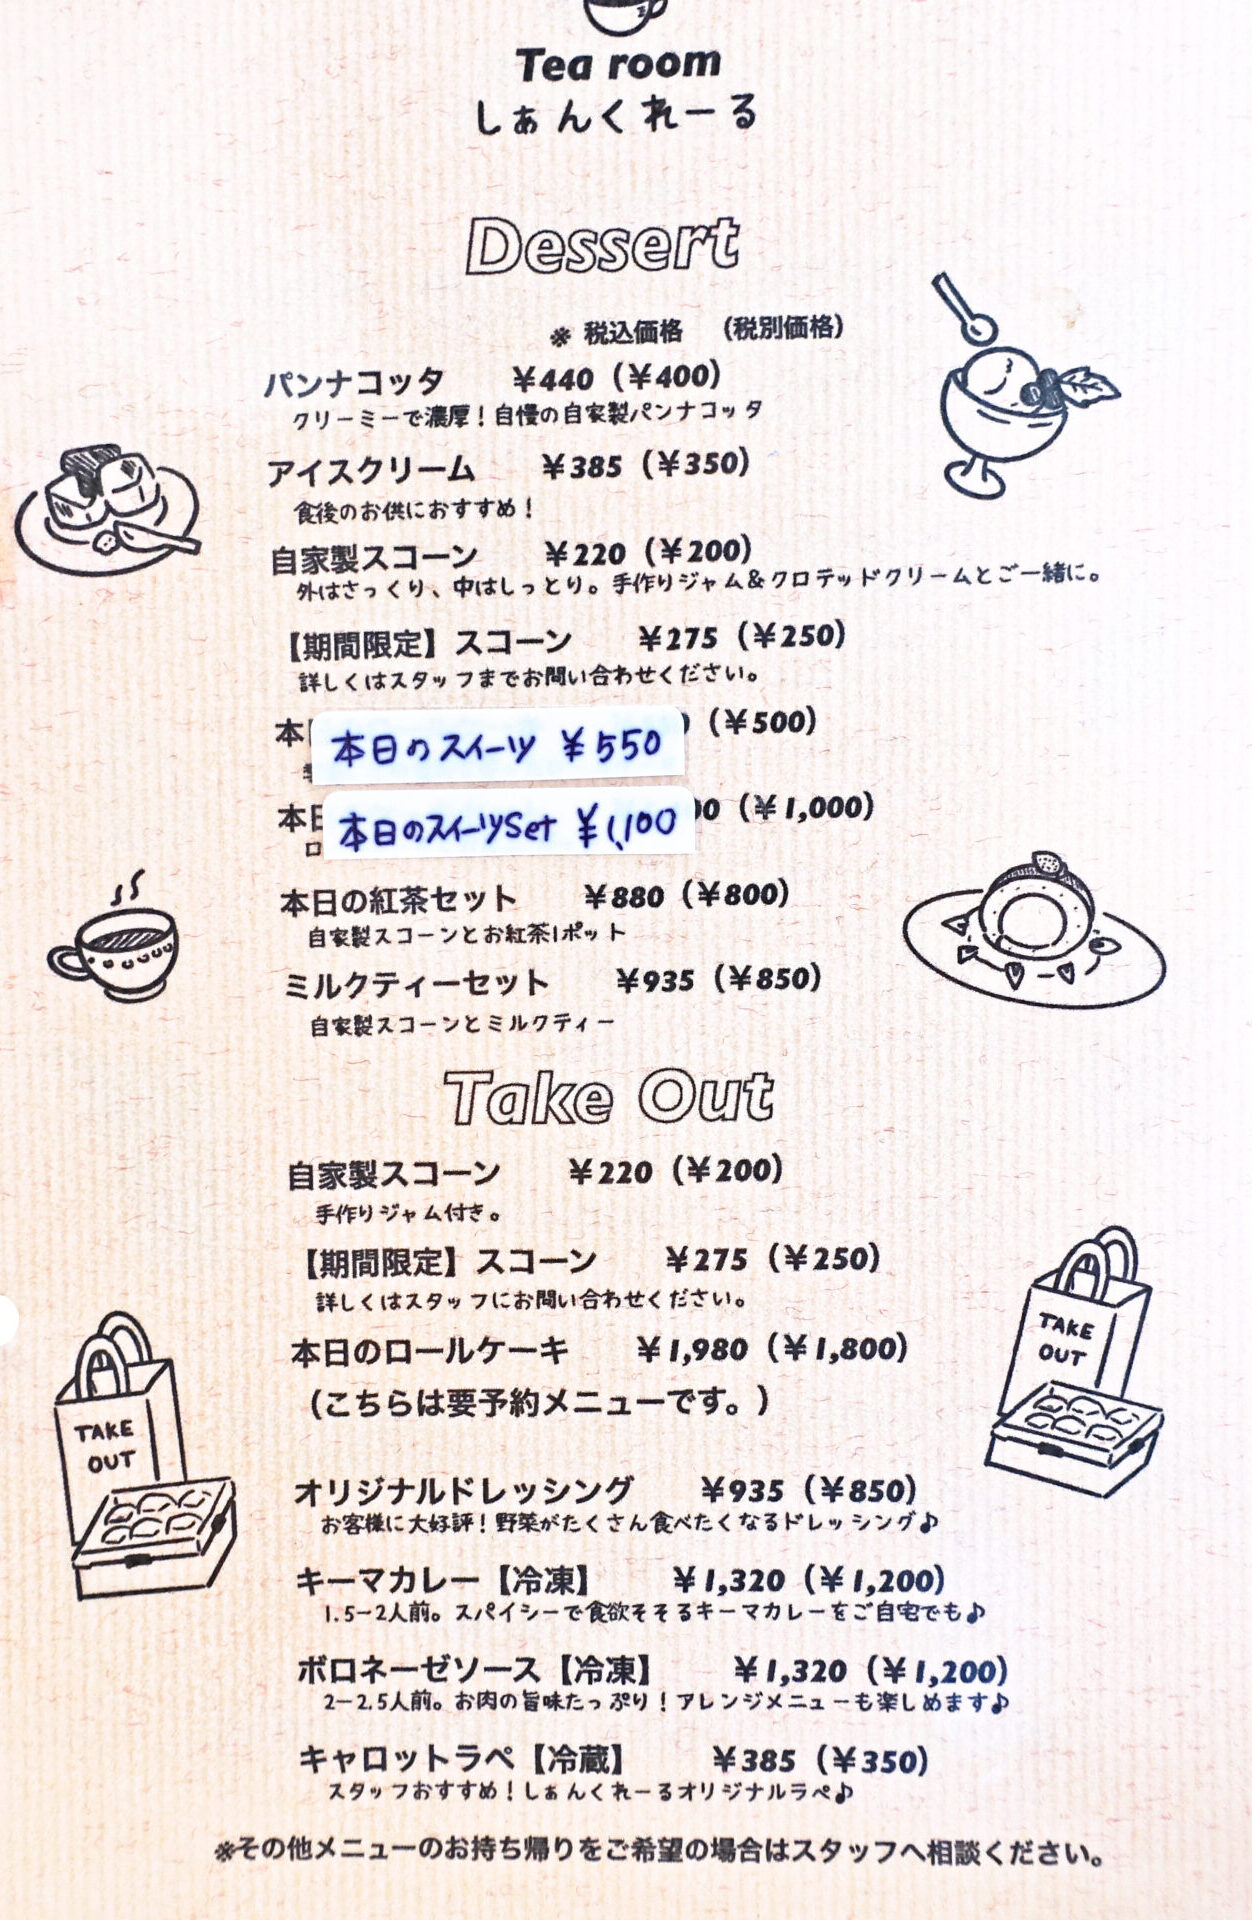 Tea room
しぁんくれーる
Dessert
※ 税込価格 (税別価格)
パンナコッタ ¥440 (¥400)
クリーミーで濃厚！自慢の自家製パンナコッタ
アイスクリーム ¥385 (¥350)
食後のお供におすすめ！
自家製スコーン ¥220 (¥200)
外はさっくり、中はしっとり。手作りジャム&クロテッドクリームとご一緒に。
【期間限定】スコーン ¥275 (¥250)
詳しくはスタッフまでお問い合わせください。
本 (¥500)
本日のスイーツ ¥550
本日 00 (¥1,000)
本日のスイーツSet ¥1,100
ロ
本日の紅茶セット ¥880 (¥800)
自家製スコーンとお紅茶1ポット
ミルクティーセット ¥935 (¥850)
自家製スコーンとミルクティー
Take Out
自家製スコーン ¥220 (¥200)
手作りジャム付き。
【期間限定】スコーン ¥275 (¥250)
詳しくはスタッフにお問い合わせください。
本日のロールケーキ ¥1,980 (¥1,800)
(こちらは要予約メニューです。)
TAKE
OUT
TAKE
OUT
オリジナルドレッシング ¥935 (¥850)
お客様に大好評！野菜がたくさん食べたくなるドレッシング♪
キーマカレー【冷凍】 ¥1,320 (¥1,200)
1.5-2人前。スパイシーで食欲そそるキーマカレーをご自宅でも♪
ボロネーゼソース【冷凍】 ¥1,320 (¥1,200)
2-2.5人前。お肉の旨味たっぷり！アレンジメニューも楽しめます♪
キャロットラペ【冷蔵】 ¥385 (¥350)
スタッフおすすめ！しぁんくれーるオリジナルラペ♪
※その他メニューのお持ち帰りをご希望の場合はスタッフへ相談ください。